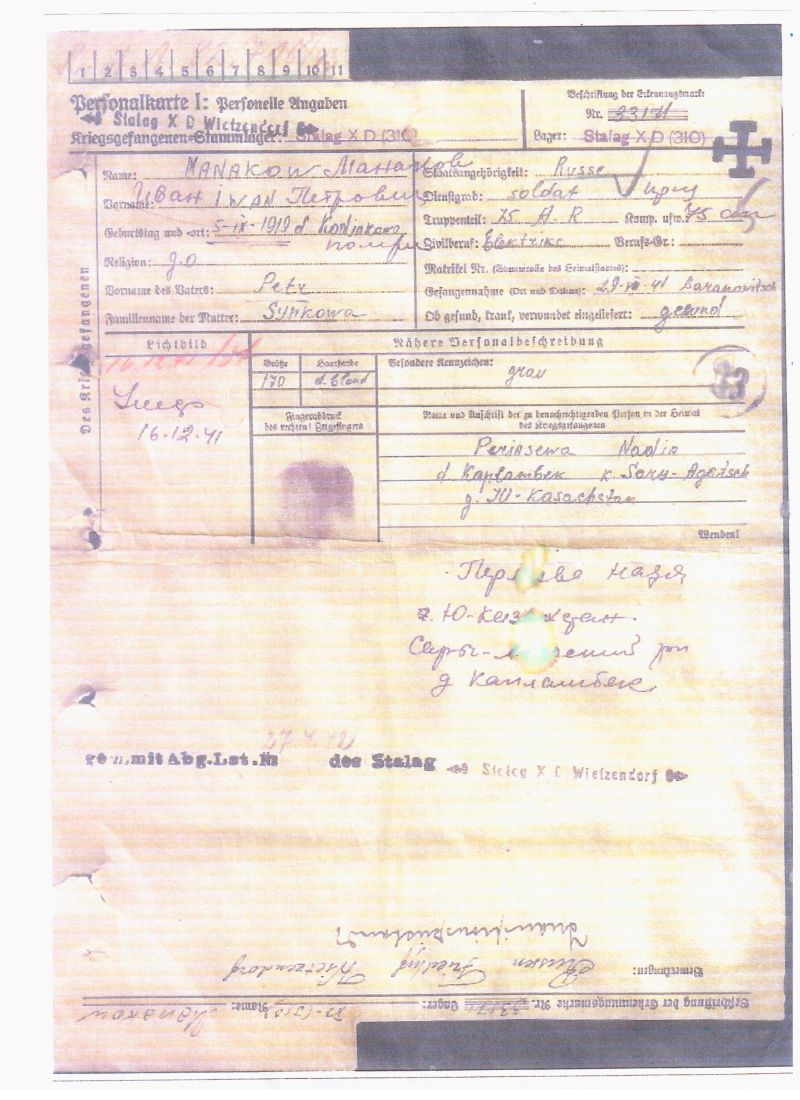 1 2 3 4 5 6 7 8 9 10 11
Personalkarte I: Personelle Angaben
Beschriftung der Erkennungsmarke
Stalag X D Wietzendorf
Nr. 33171
Kriegsgefangenen-Stammlager: Stalag X D (310)
Lager: Stalag X D (310)
Des Kriegsgefangenen
Name: MANAKOW Манаков
Staatsangehörigkeit: Russe
Vorname: Иван IWAN Петрович
Dienstgrad: soldat
Geburtstag und -ort: 5-IX-1919 d.
Truppenteil: 75 A.R Komp. usw.
Zivilberuf: Elektrike Berufs-Gr.:
Religion: g.o
Matrikel Nr. (Stammrolle des Heimatstaates):
Vorname des Vaters: Petr
Gefangennahme (Ort und Datum): 29-VII-41 Baranowitsch
Familienname der Mutter:
Ob gesund, krank, verwundet eingeliefert: gesund
Lichtbild
Nähere Personalbeschreibung
Größe Haarfarbe Besondere Kennzeichen:
170 d. blond grau
16.12.41
Fingerabdruck
des rechten! Zeigefingers
Name und Anschrift der zu benachrichtigenden Person in der Heimat
des Kriegsgefangenen
Nadia
d. Kaplambek Sary-Agatsch
g. Ю-Kasachstan
Wenden!
Надя
Ю-
д Капламбек
27.4.42
gem. mit Abg.Lst.№ des Stalag Stalag X D Wietzendorf
Russen Friedhof Wietzendorf
Bemerkungen:
Beschriftung der Erkennungsmarke Nr. 33171 Lager: Name: Manakow